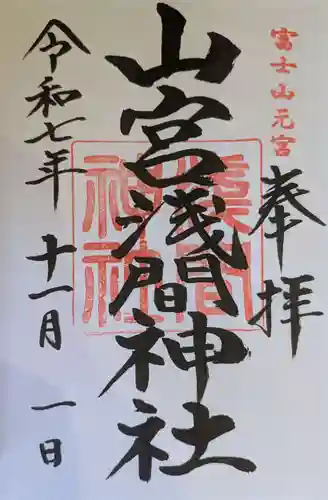 富士山元宮
奉拝
山宮浅間神社
淺間
神社
令和七年
十一月
一日